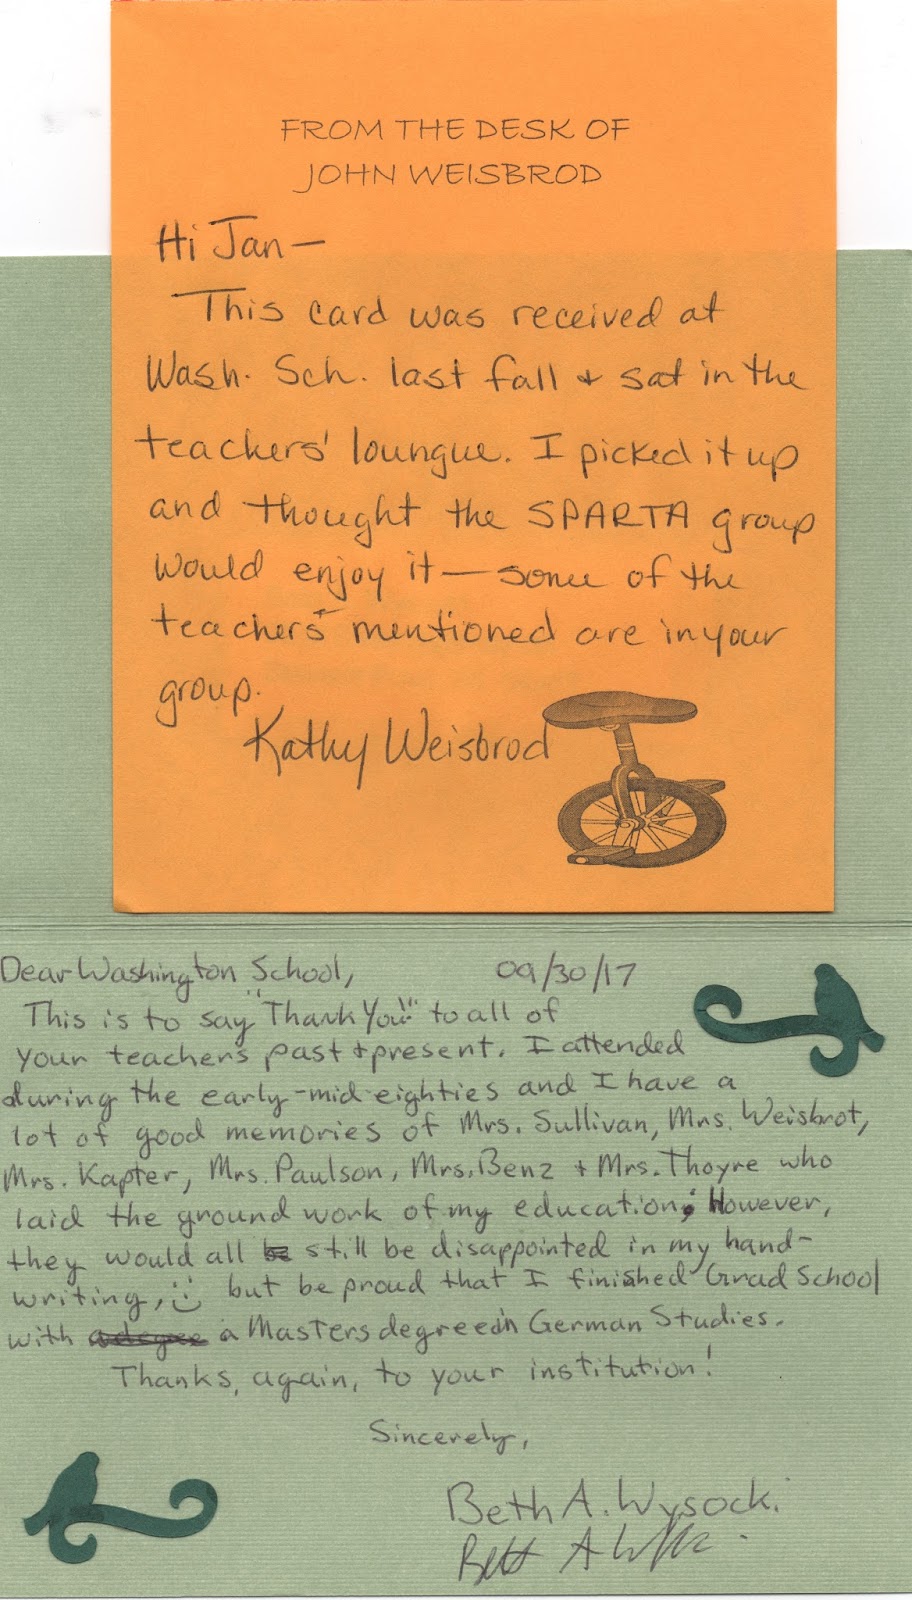 FROM THE DESK OF
JOHN WEISBROD
Hi Jan—
This card was received at
Wash. Sch. last fall + sat in the
teachers' loungue. I picked it up
and thought the SPARTA group
would enjoy it — some of the
teachers mentioned are in your
group.
Kathy Weisbrod
Dear Washington School, 09/30/17
This is to say "Thank You!" to all of
your teachers past + present. I attended
during the early-mid-eighties and I have a
lot of good memories of Mrs. Sullivan, Mrs. Weisbrot,
Mrs. Kapter, Mrs. Paulson, Mrs. Benz + Mrs. Thoyre who
laid the ground work of my education; However,
they would all be still be disappointed in my hand-
writing, :) but be proud that I finished Grad School
with a degree a Masters degree in German Studies.
Thanks, again, to your institution!
Sincerely,
Beth A. Wysocki
Beth A